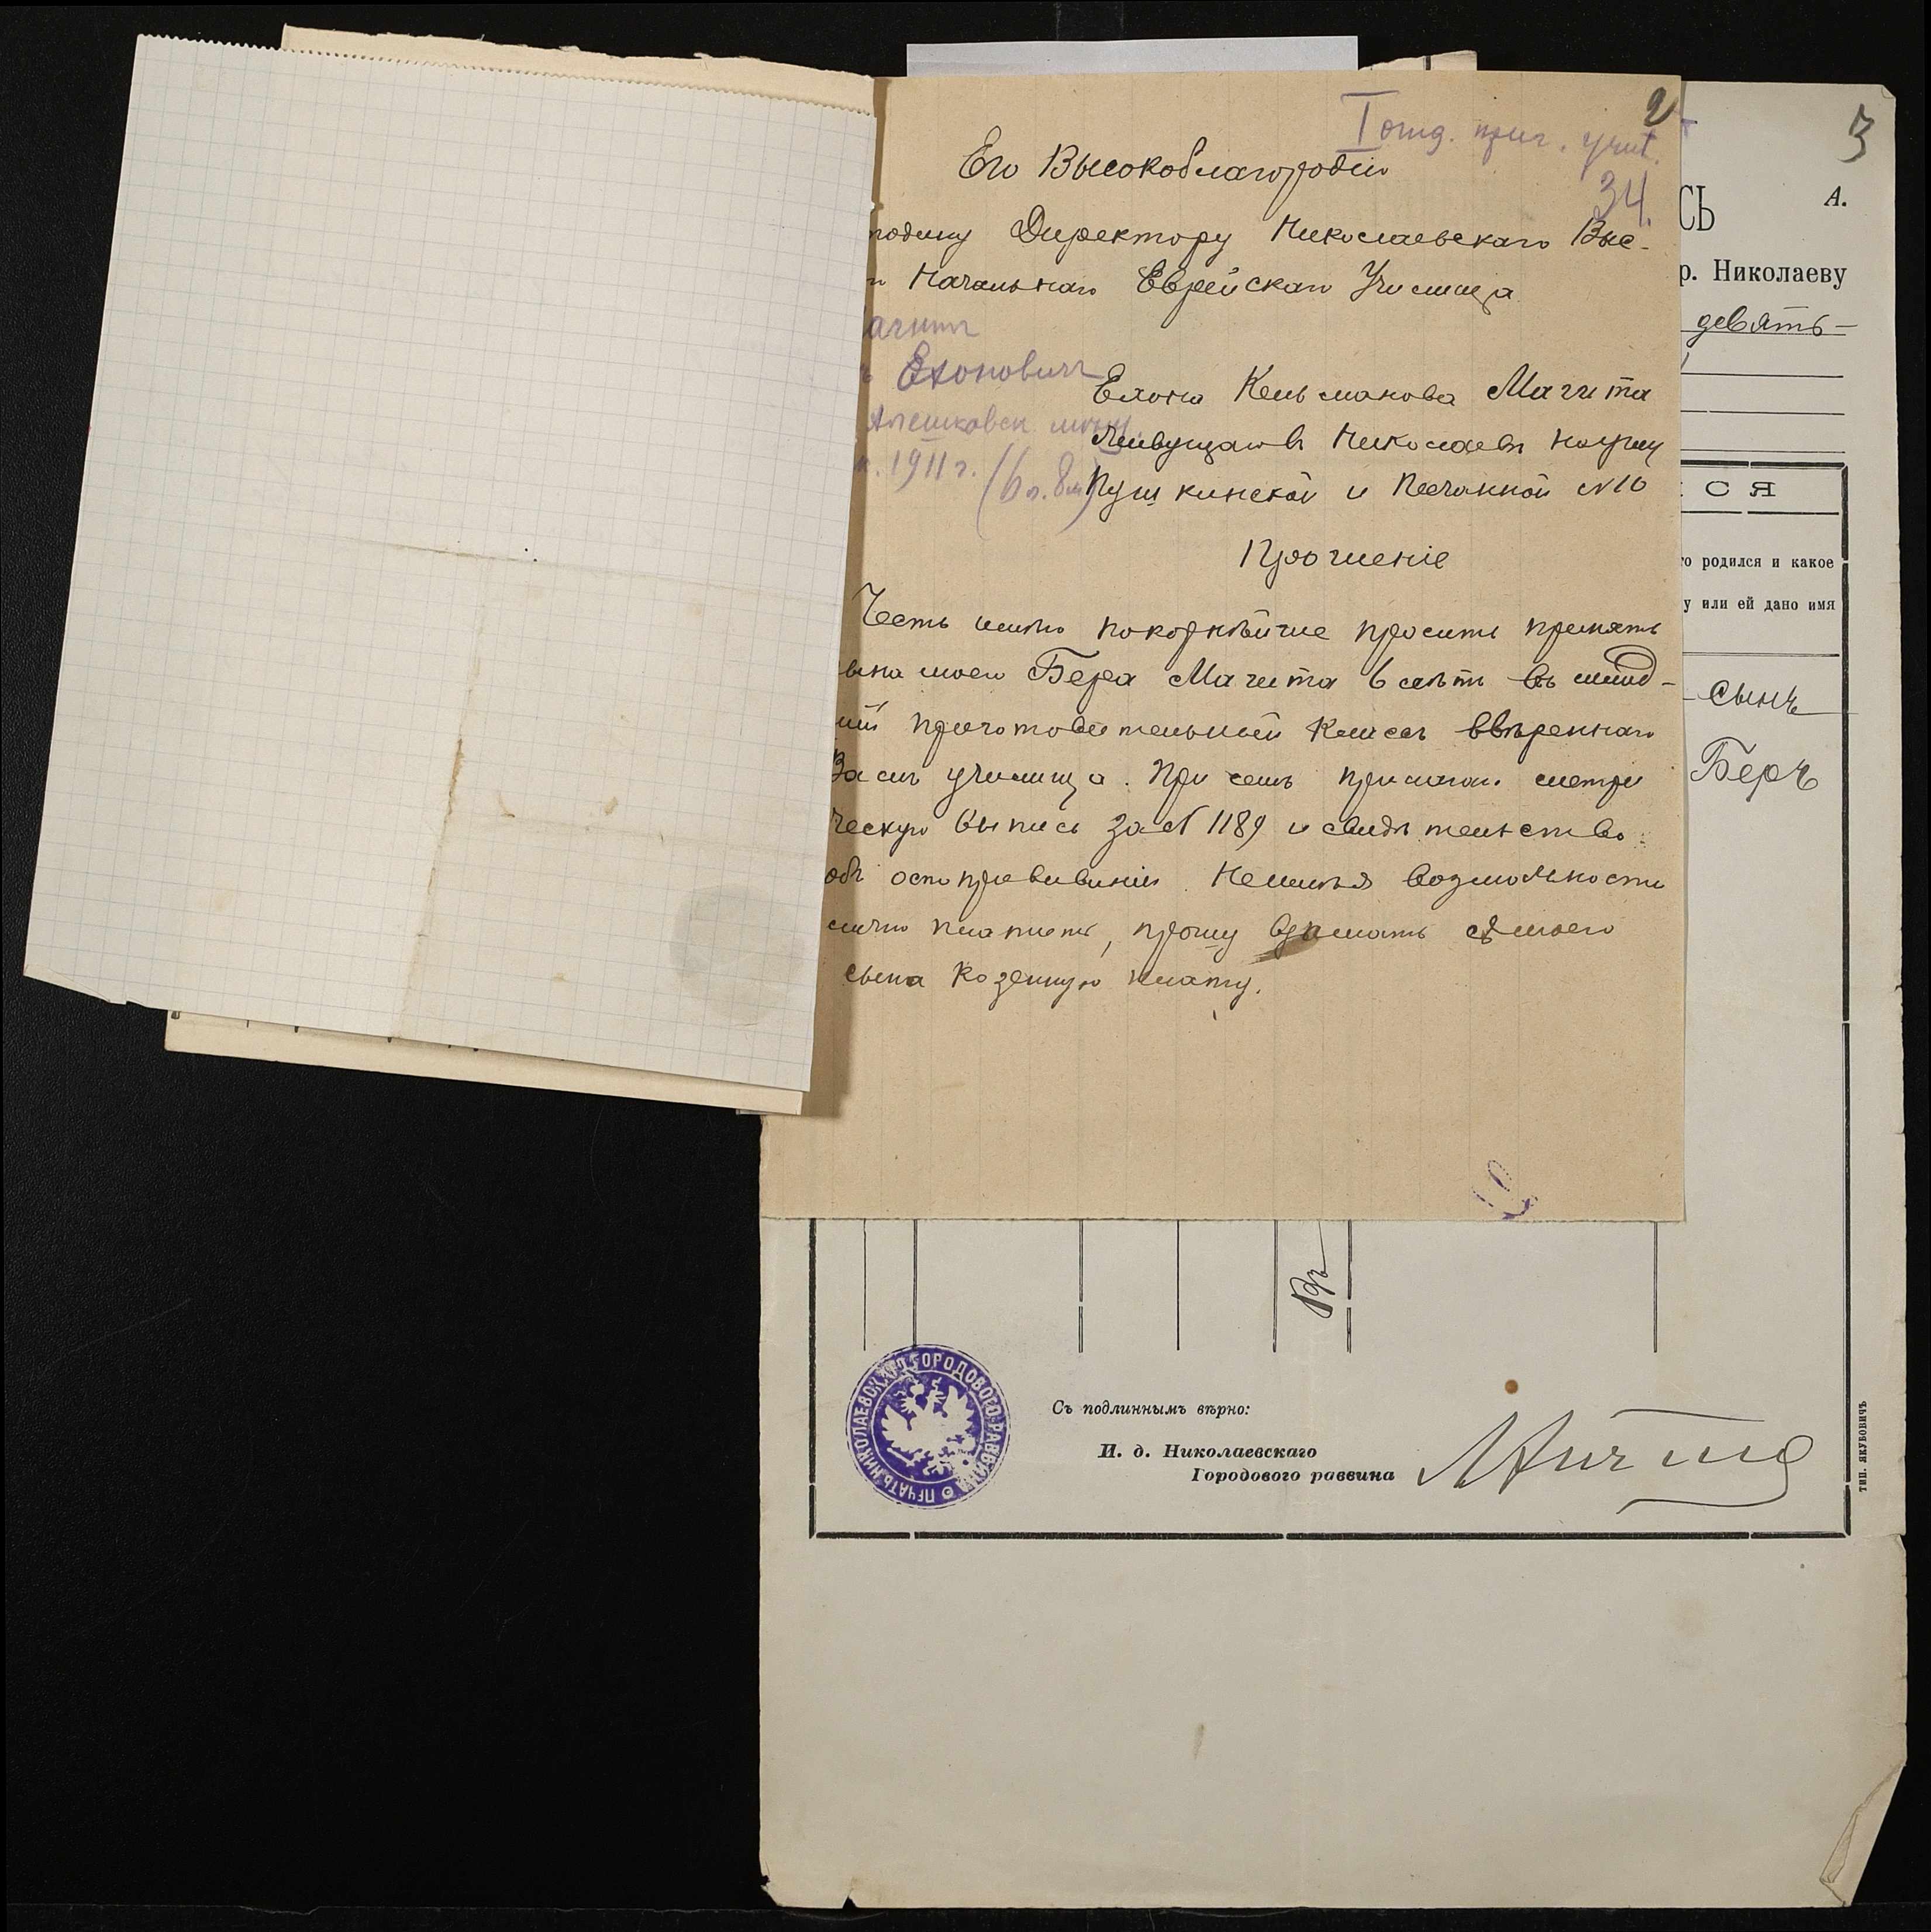 2
I отд. приг. учил.
34.
Его Высокоблагородію
подину Директору Николаевскаго Выс-
Начальнаго Еврейскаго Училища
Ехоновичъ
Алешковск мѣщ.
1911 г. (6 л. 8 м)
Ехона Кельманова Магита
живущаго въ Николаевѣ по улиц
Пушкинской и Песчанной №10
Прошеніе
Честь имѣю покорнѣйше просить принять
ына моего Бера Магита 6 лѣтъ въ млад-
ій приготовительный классъ ввѣреннаго
Вамъ училища. При семъ прилагаю метри
ческую выпись за № 1189 и свидѣтельство
объ оспопрививаніи. Неимѣя возможности
платить, прошу взымать съ моего
сына казенную плату.
3
СЬ
А.
р. Николаеву
девять-
СЯ
го родился и какое
у или ей дано имя
сынъ
Беръ
ПЕЧАТЬ НИКОЛАЕВСКАГО ГОРОДОВОГО РАВВИНА
Съ подлиннымъ вѣрно:
И. д. Николаевскаго
Городового раввина
тип. Якубовичъ